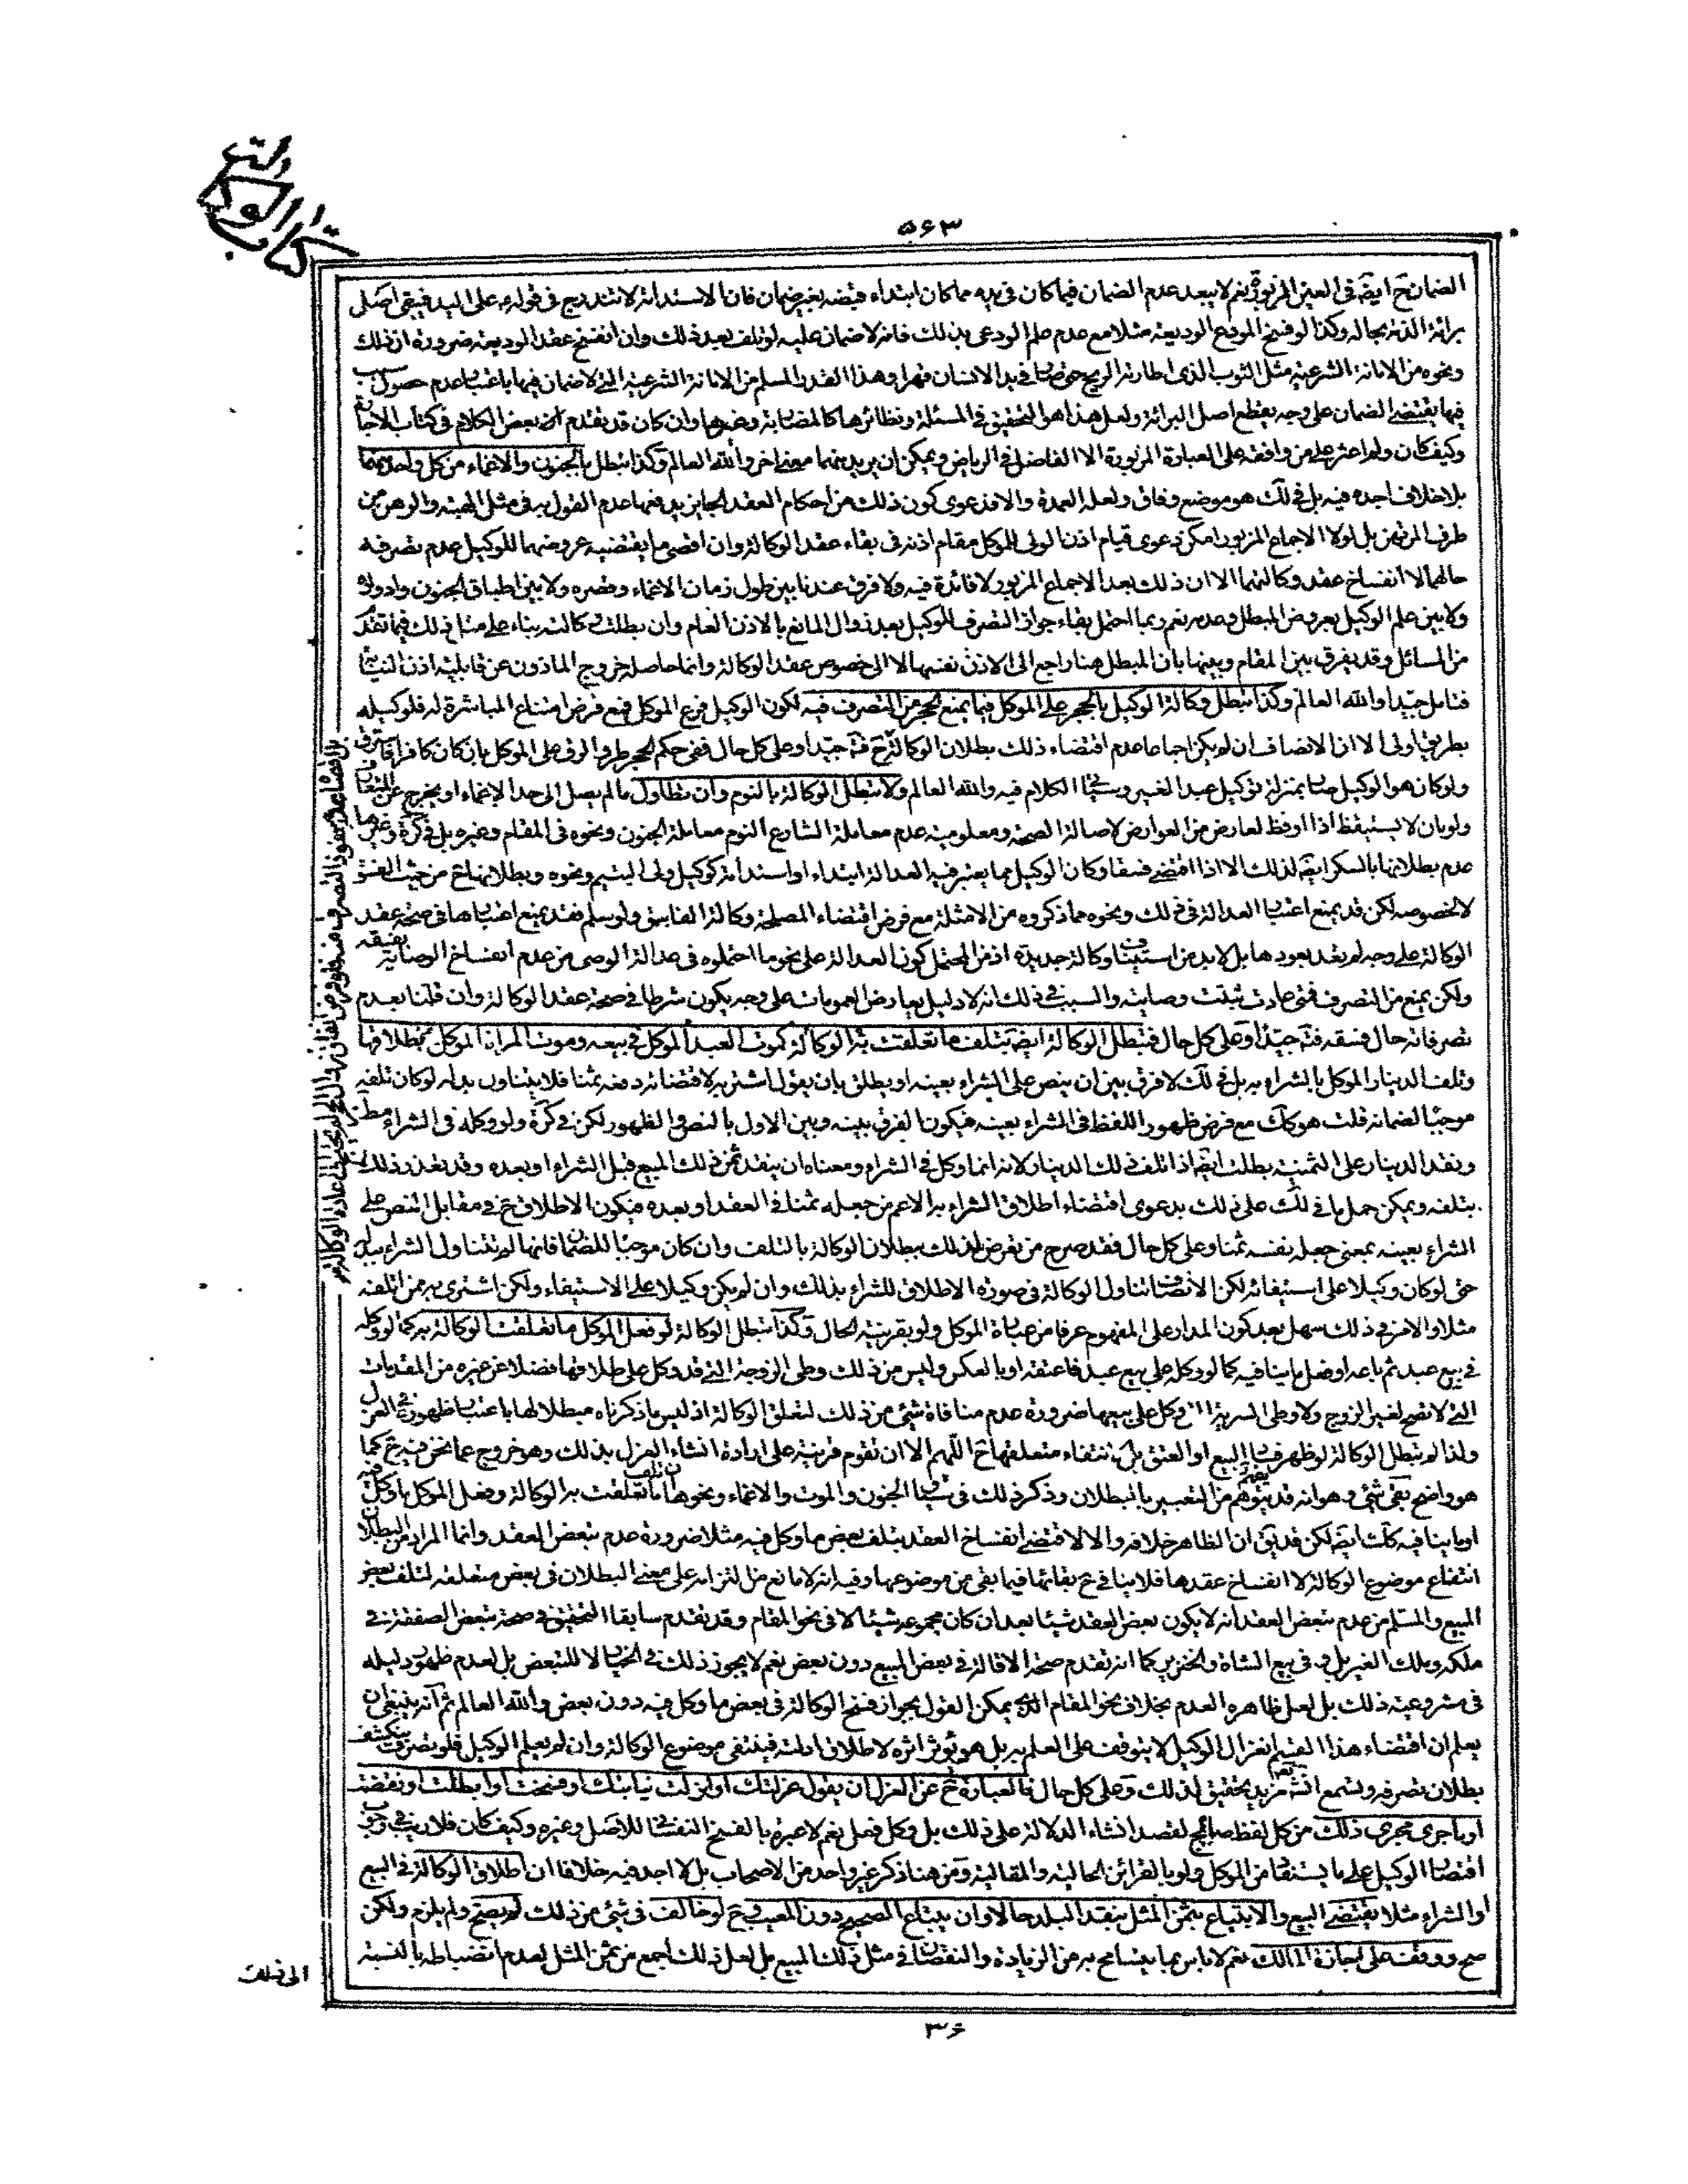 كتاب الوكالة
۵۶۳
الضمان ح ايضا في العين المزبورة نعم لا يبعد عدم الضمان فيما كان في يده مما كان ابتداء قبضه بغير ضمان فان الاستدامة لا تندرج في قوله على اليد فيبقى اصل
برائة الذمة بحاله وكذا لو فسخ المودع الوديعة مثلا مع عدم علم الودعى بذلك فانه لا ضمان عليه لو تلف بعد ذلك وان انفسخ عقد الوديعة ضرورة ان ذلك
ونحوه من الامانة الشرعية مثل الثوب الذى اطارته الريح حتى صار في يد الانسان قهرا وهذا القدر المسلم من الامانة الشرعية التى لا ضمان فيها باعتبار عدم حصول سبب
فيها يقتضى الضمان على وجه يقطع اصل البرائة ولعل هذا هو التحقيق في المسئلة ونظائرها كالمضاربة وغيرها وان كان قد تقدم لنا بعض الكلام في كتاب الاجارة
وكيف كان ولم اعثر على من وافقه على العبارة المزبورة الا الفاضل في الرياض ويمكن ان يريد بهما معنى اخر والله العالم وكذا تبطل بالجنون والاغماء من كل واحد منهما
بلا خلاف اجده فيه بل في لك هو موضع وفاق ولعله العمدة والا فدعوى كون ذلك من احكام العقد الجايز يدفعها عدم القول به في مثل الهبة والرهن من
طرف المرتهن بل لولا الاجماع المزبور امكن دعوى قيام اذن الولى للموكل مقام اذنه في بقاء عقد الوكالة وان اقصى ما يقتضيه عروضهما للوكيل عدم تصرفه
حالهما لا انفساخ عقد وكالتهما الا ان ذلك بعد الاجماع المزبور لا فائدة فيه ولا فرق عندنا بين طول زمان الاغماء وقصره ولا بين اطباق الجنون وادواره
ولا بين علم الوكيل بعروض المبطل وعدمه نعم ربما احتمل بقاء جواز التصرف للوكيل بعد زوال المانع بالاذن العام وان بطلت وكالته بناء على مثل ذلك فيما تقدم
من المسائل وقد يفرق بين المقام وبينها بان المبطل هنا راجع الى الاذن نفسها لا الى خصوص عقد الوكالة وانما حاصله خروج الماذون عن قابلية اذن النيابة
فتامل جيدا والله العالم وكذا تبطل وكالة الوكيل بالحجر على الموكل فيما يمنع الحجر من التصرف فيه لكون الوكيل فرع الموكل فمع فرض امتناع المباشرة له فلوكيله
بطريق اولى الا ان الانصاف ان لم يكن اجماعا عدم اقتضاء ذلك بطلان الوكالة ح فت جيدا وعلى كل حال ففى حكم الحجر طرو الرق على الموكل بان كان كافرا فاسترق
ولو كان هو الوكيل صار بمنزلة توكيل عبد الغير وسيأتى الكلام فيه والله العالم ولا تبطل الوكالة بالنوم وان تطاول ما لم يصل الى حد الاغماء او يخرج عن المتعارف
ولو بان لا يستيقظ اذا اوقظ لعارض من العوارض لاصالة الصحة ومعلومية عدم معاملة الشارع النوم معاملة الجنون ونحوه في المقام وغيره بل في كرة وغيرها
عدم بطلانها بالسكر ايضا لذلك الا اذا اقتضى فسقا وكان الوكيل مما يعتبر فيه العدالة ابتداء او استدامة كوكيل ولى اليتيم ونحوه وبطلانها ح من حيث الفسق
لا لخصوصه لكن قد يمنع اعتبار العدالة في ذلك ونحوه مما ذكروه من الامثلة مع فرض اقتضاء المصلحة وكالة الفاسق ولو سلم فقد يمنع اعتبارها في صحة عقد
الوكالة على وجه لم تعد بعودها بل لا بد من استيناف وكالة جديدة اذ من المحتمل كون العدالة على نحو ما احتملوه في عدالة الوصى من عدم انفساخ الوصاية بفسقه
ولكن يمنع من التصرف فمتى عادت ثبتت وصايته والسبب في ذلك انه لا دليل يعارض العمومات على وجه يكون شرطا في صحة عقد الوكالة وان قلنا بعدم
تصرفاته حال فسقه فت جيدا وعلى كل حال فتبطل الوكالة ايضا بتلف ما تعلقت به الوكالة كموت العبد الموكل في بيعه وموت المراة الموكل بطلاقها
وتلف الدينار الموكل بالشراء به بل في لك لا فرق بين ان ينص على الشراء بعينه او يطلق بان يقول اشتر به لاقتضائه دفعه ثمنا فلا يتناول بدله لو كان تلفه
موجبا لضمانه قلت هو كك مع فرض ظهور اللفظ في الشراء بعينه فيكون الفرق بينه وبين الاول بالنص والظهور لكن في كرة ولو وكله في الشراء مطلقا
ونقد الدينار على الثمنية بطلت ايضا اذا تلف ذلك الدينار لانه انما وكل في الشراء ومعناه ان ينقد ثمن ذلك المبيع قبل الشراء او بعده وقد تعذر ذلك
بتلفه ويمكن حمل ما في لك على ذلك بدعوى اقتضاء اطلاق الشراء به الاعم من جعله ثمنا في العقد او بعده فيكون الاطلاق ح في مقابل النص على
الشراء بعينه بمعنى جعله بنفسه ثمنا وعلى كل حال فقد صرح من تعرض لذلك ببطلان الوكالة بالتلف وان كان موجبا للضمان فانها لم تتناول الشراء ببدله
حتى لو كان وكيلا على استيفائه لكن الانصاف تناول الوكالة في صورة الاطلاق للشراء بذلك وان لم يكن وكيلا على الاستيفاء ولكن اشترى به ممن اتلفه
مثلا والامر في ذلك سهل بعد كون المدار على المفهوم عرفا من عبارة الموكل ولو بقرينة الحال وكذا تبطل الوكالة لو فعل الموكل ما تعلقت الوكالة به كما لو وكله
في بيع عبد ثم باعه او فعل ما ينافيه كما لو وكله على بيع عبد فاعتقه او بالعكس وليس من ذلك وطى الزوجة التى قد وكل على طلاقها فضلا عن غيره من المقدمات
التى لا تصح لغير الزوج ولا وطى السرية التى وكل على بيعها ضرورة عدم منافاة شئ من ذلك لتعلق الوكالة اذ ليس ما ذكرناه مبطلا لها باعتبار ظهوره في العزل
ولذا لم تبطل الوكالة لو ظهر فساد البيع او العتق بل لانتفاء متعلقها ح اللهم الا ان تقوم قرينة على ارادة انشاء العزل بذلك وهو خروج عما نحن فيه ح كما
هو واضح بقى شئ وهو انه قد يتوهم من التعبير بالبطلان وذكر ذلك في سياق الجنون والموت والاغماء ونحوها ان تلف ما تعلقت به الوكالة وفعل الموكل ما وكل فيه
او ما ينافيه كك ايضا لكن قد يق ان الظاهر خلافه والا لاقتضى انفساخ العقد بتلف بعض ما وكل فيه مثلا ضرورة عدم تبعض العقد وانما المراد من البطلان
انتفاء موضوع الوكالة لا انفساخ عقدها فلا ينافى ح بقائها فيما بقى من موضوعها وفيه انه لا مانع من التزامه على معنى البطلان في بعض متعلقه لتلف بعض
المبيع والمسلم من عدم تبعض العقد انه لا يكون بعض العقد شيئا بعد ان كان مجموعه شيئا لا في نحو المقام وقد تقدم سابقا التحقيق في صحة تبعض الصفقة في
ملكه وملك الغير بل وفي بيع الشاة والخنزير كما انه تقدم صحة الاقالة في بعض المبيع دون بعض نعم لا يجوز ذلك في الخيار لا للتبعض بل لعدم ظهور دليله
في مشروعية ذلك بل لعل ظاهره العدم بخلاف نحو المقام الذي يمكن القول بجواز فسخ الوكالة في بعض ما وكل فيه دون بعض والله العالم ثم انه ينبغى ان
يعلم ان اقتضاء هذا القسم انعزال الوكيل لا يتوقف على العلم به بل هو يؤثر اثره لاطلاق ادلته فينتفى موضوع الوكالة وان لم يعلم الوكيل فلو تصرف ينكشف
بطلان تصرفه وتسمع انش مزيد تحقيق لذلك وعلى كل حال فالعبارة ح عن العزل ان يقول عزلتك او ازلت نيابتك او فسخت او ابطلت او نقضت
او ما جرى مجرى ذلك من كل لفظ صالح لقصد انشاء الدلالة على ذلك بل وكل فعل نعم لا عبرة بالفسخ النفسانى للاصل وغيره وكيف كان فلا ريب في وجوب
اقتصار الوكيل على ما يستفاد من الموكل ولو بالقرائن الحالية والمقالية ومن هنا ذكر غير واحد من الاصحاب بل لا اجد فيه خلافا ان اطلاق الوكالة في البيع
او الشراء مثلا يقتضى البيع والابتياع بثمن المثل بنقد البلد حالا وان يبتاع الصحيح دون المعيب وح لو خالف في شئ من ذلك لم يصح ولم يلزم ولكن
صح ووقف على اجازة المالك نعم لا باس بما يتسامح به من الزيادة والنقصان في مثل ذلك المبيع بل لعل ذلك اجمع من ثمن المثل لعدم انضباطه بالنسبة
الى ذلك
۳۶